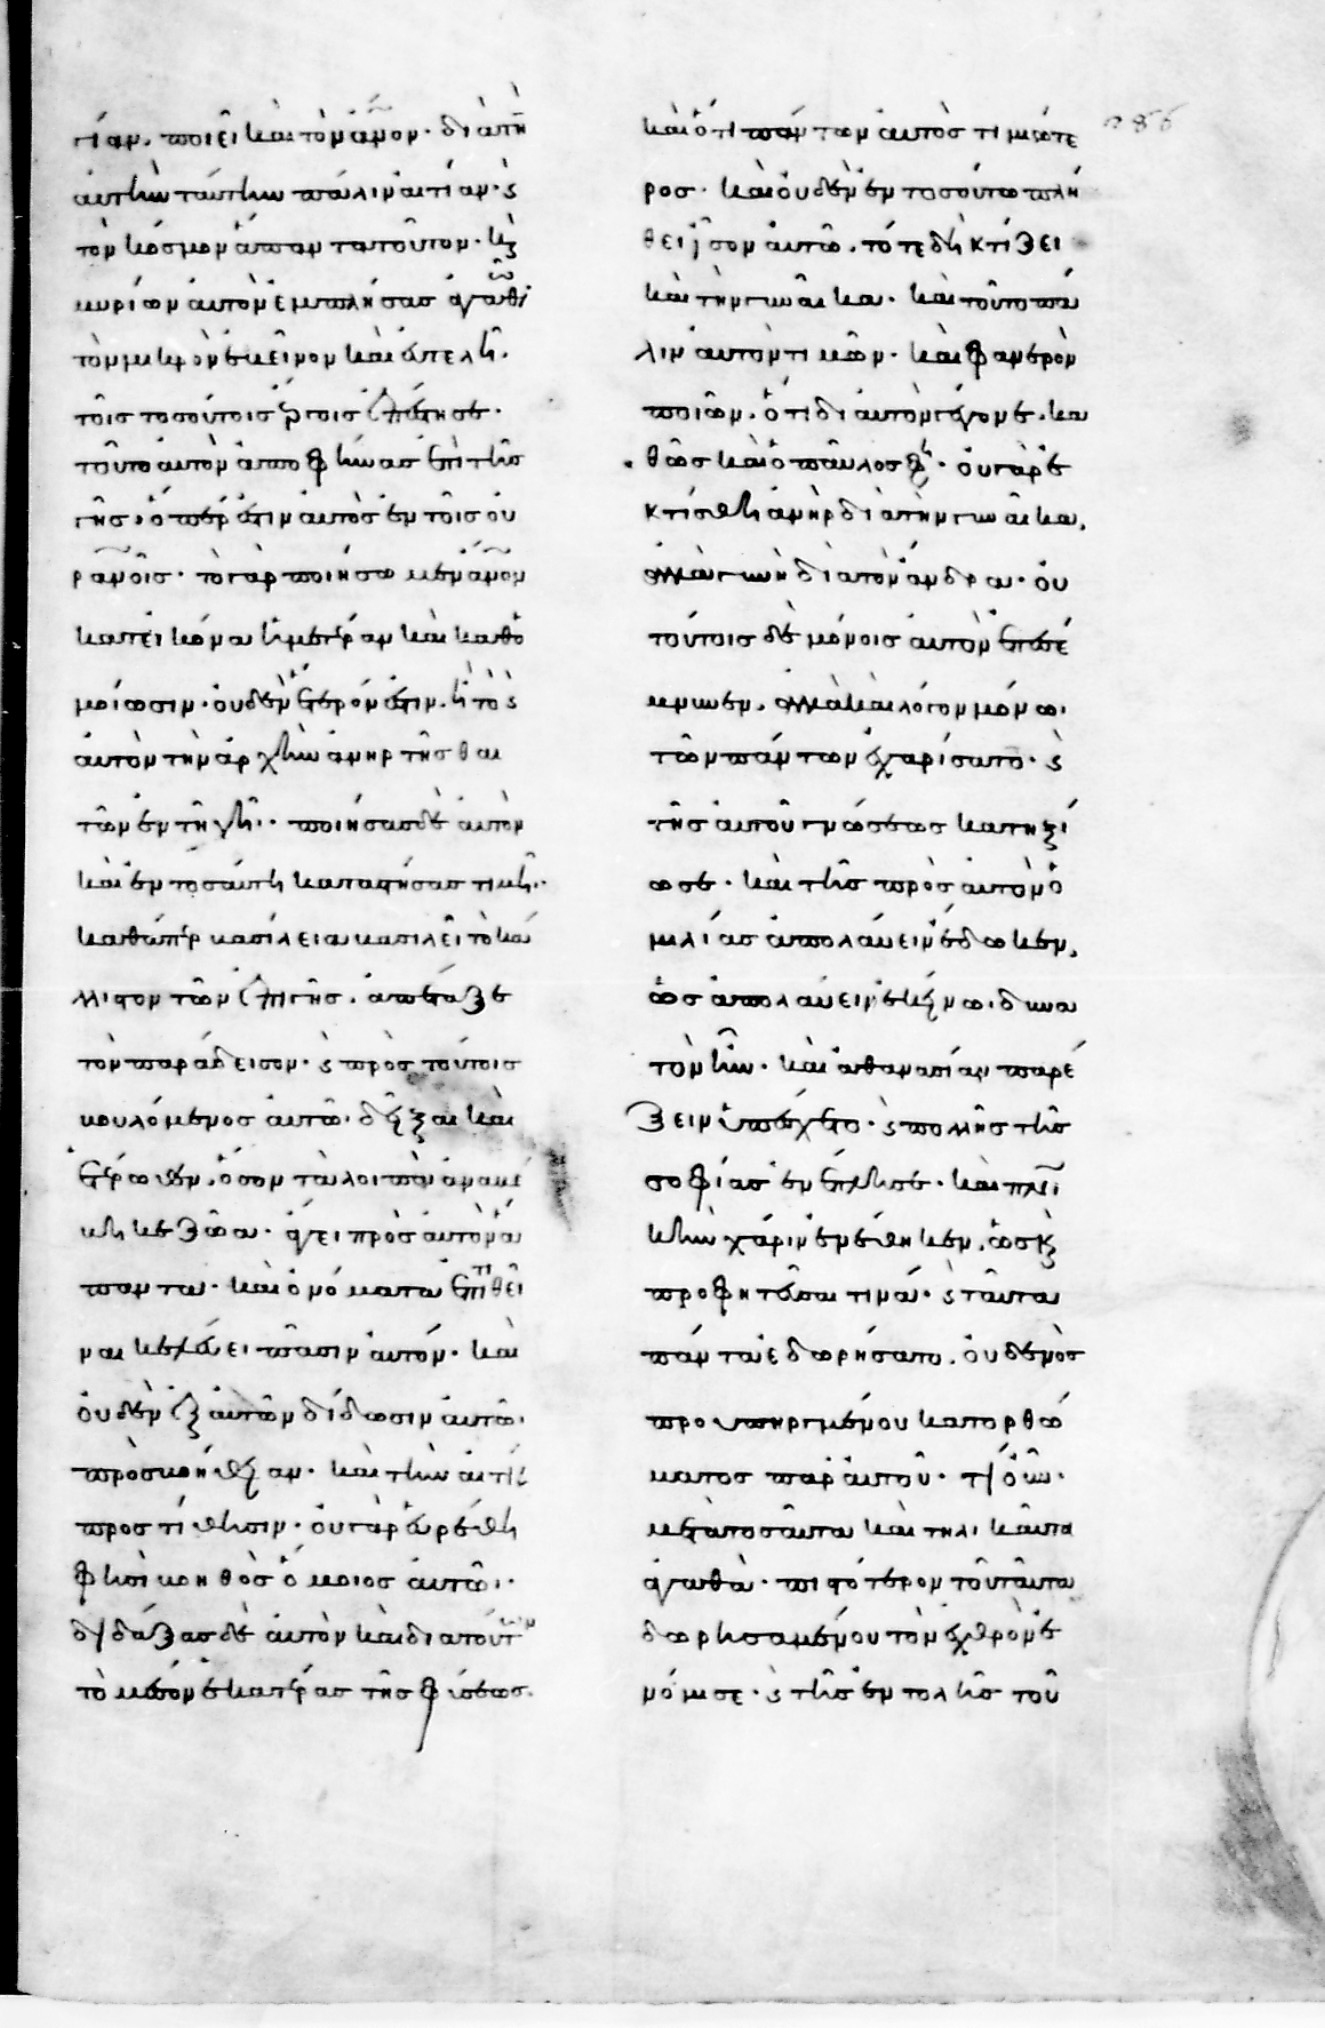 τίαν. ποιεῖ καὶ τὸν ἄνον· διὰ τὴν
αὐτὴν ταύτην πάλιν αἰτίαν· καὶ
τὸν κόσμον ἅπαντα τοῦτον· καὶ
μυρίων αὐτὸν ἐμπλήσας ἀγαθῶν
τὸν μικρὸν ἐκεῖνον καὶ εὐτελῆ·
τοῖς τοσούτοις ἔργοις ἐπέστησε·
τοῦτο αὐτὸν ἀποφήνας ἐπὶ τῆς
γῆς, ὅπερ ἐστὶν αὐτὸς ἐν τοῖς οὐ
ρανοῖς· τὸ γὰρ ποιήσωμεν ἄνον
κατ' εἰκόνα ἡμετέραν καὶ καθ' ὁ
μοίωσιν· οὐδὲν ἕτερόν ἐστιν, ἢ τὸ καὶ
αὐτὸν τὴν ἀρχὴν ἀνηρτῆσθαι
τῶν ἐν τῇ γῇ· ποιήσας δὲ αὐτὸν
καὶ ἐν τοσαύτῃ καταστήσας τιμῇ·
καθάπερ βασίλεια βασιλεῖ τὸ κά
λλιστον τῶν ἐπὶ γῆς, ἀπέταξε
τὸν παράδεισον· καὶ πρὸς τούτοις
βουλόμενος αὐτῷ δεῖξαι καὶ
ἑτέρωθεν, ὅσον τὰ λοιπὰ ἀναβέ
βηκε ζῶα· ἄγει πρὸς αὐτὸν ἅ
παντα· καὶ ὀνόματα ἐπιτιθεῖ
ναι κελεύει πᾶσιν αὐτόν· καὶ
οὐδὲν ἐξ αὐτῶν δίδωσιν αὐτῷ
πρὸς βοήθειαν· καὶ τὴν αἰτίαν
προστίθησιν· οὐ γὰρ εὑρέθη
φησὶ βοηθὸς ὅμοιος αὐτῷ·
διδάξας δὲ αὐτὸν καὶ διὰ τούτων
τὸ μέσον ἑκατέρας τῆς φύσεως·
καὶ ὅτι πάντων αὐτὸς τιμιώτε
ρος· καὶ οὐδὲν ἐν τοσούτω πλή
θει ἴσον αὐτῶ. τότε δὴ κτίζει
καὶ τὴν γυναῖκα· καὶ τοῦτο πά
λιν αὐτὸν τιμῶν· καὶ φανερὸν
ποιῶν, ὅτι δι' αὐτὸν γέγονε. κα
θὼς καὶ ὁ παῦλος φησί· οὐ γὰρ ἐ
κτίσθη ἀνὴρ διὰ τὴν γυναῖκα,
ἀλλὰ γυνὴ διὰ τὸν ἄνδρα· οὐ
τούτοις δὲ μόνοις αὐτὸν ἐπέσέ
μνυεν, ἀλλὰ καὶ λόγον μόνῳ
τῶν πάντων ἐχαρίσατο· καὶ
τῆς αὐτοῦ γνώσεως κατηξί
ωσε· καὶ τῆς πρὸς αὐτὸν ὁ
μιλίας ἀπολαύειν ἔδωκεν,
ὡς ἀπολαύειν ἐκείνῳ δυνα
τὸν ἦν· καὶ ἀθανασίαν παρέ
ξειν ὑπέσχετο· καὶ πολλῆς τῆς
σοφίας ἐνέπλησε· καὶ πνευματι
κὴν χάριν ἐνέθηκεν, ὡς καὶ
προφητεῦσαι τινά· καὶ ταῦτα
πάντα ἐδωρήσατο, οὐδενὸς
προυπηργμένου κατορθώ
ματος παρ' αὐτοῦ· τί οὖν·
μετὰ τοσαῦτα καὶ τηλικαῦτα
ἀγαθὰ· πιστότερον τοῦ ταῦτα
δωρησαμένου τὸν ἐχθρὸν ἐ
νόμισε· καὶ τῆς ἐντολῆς τοῦ